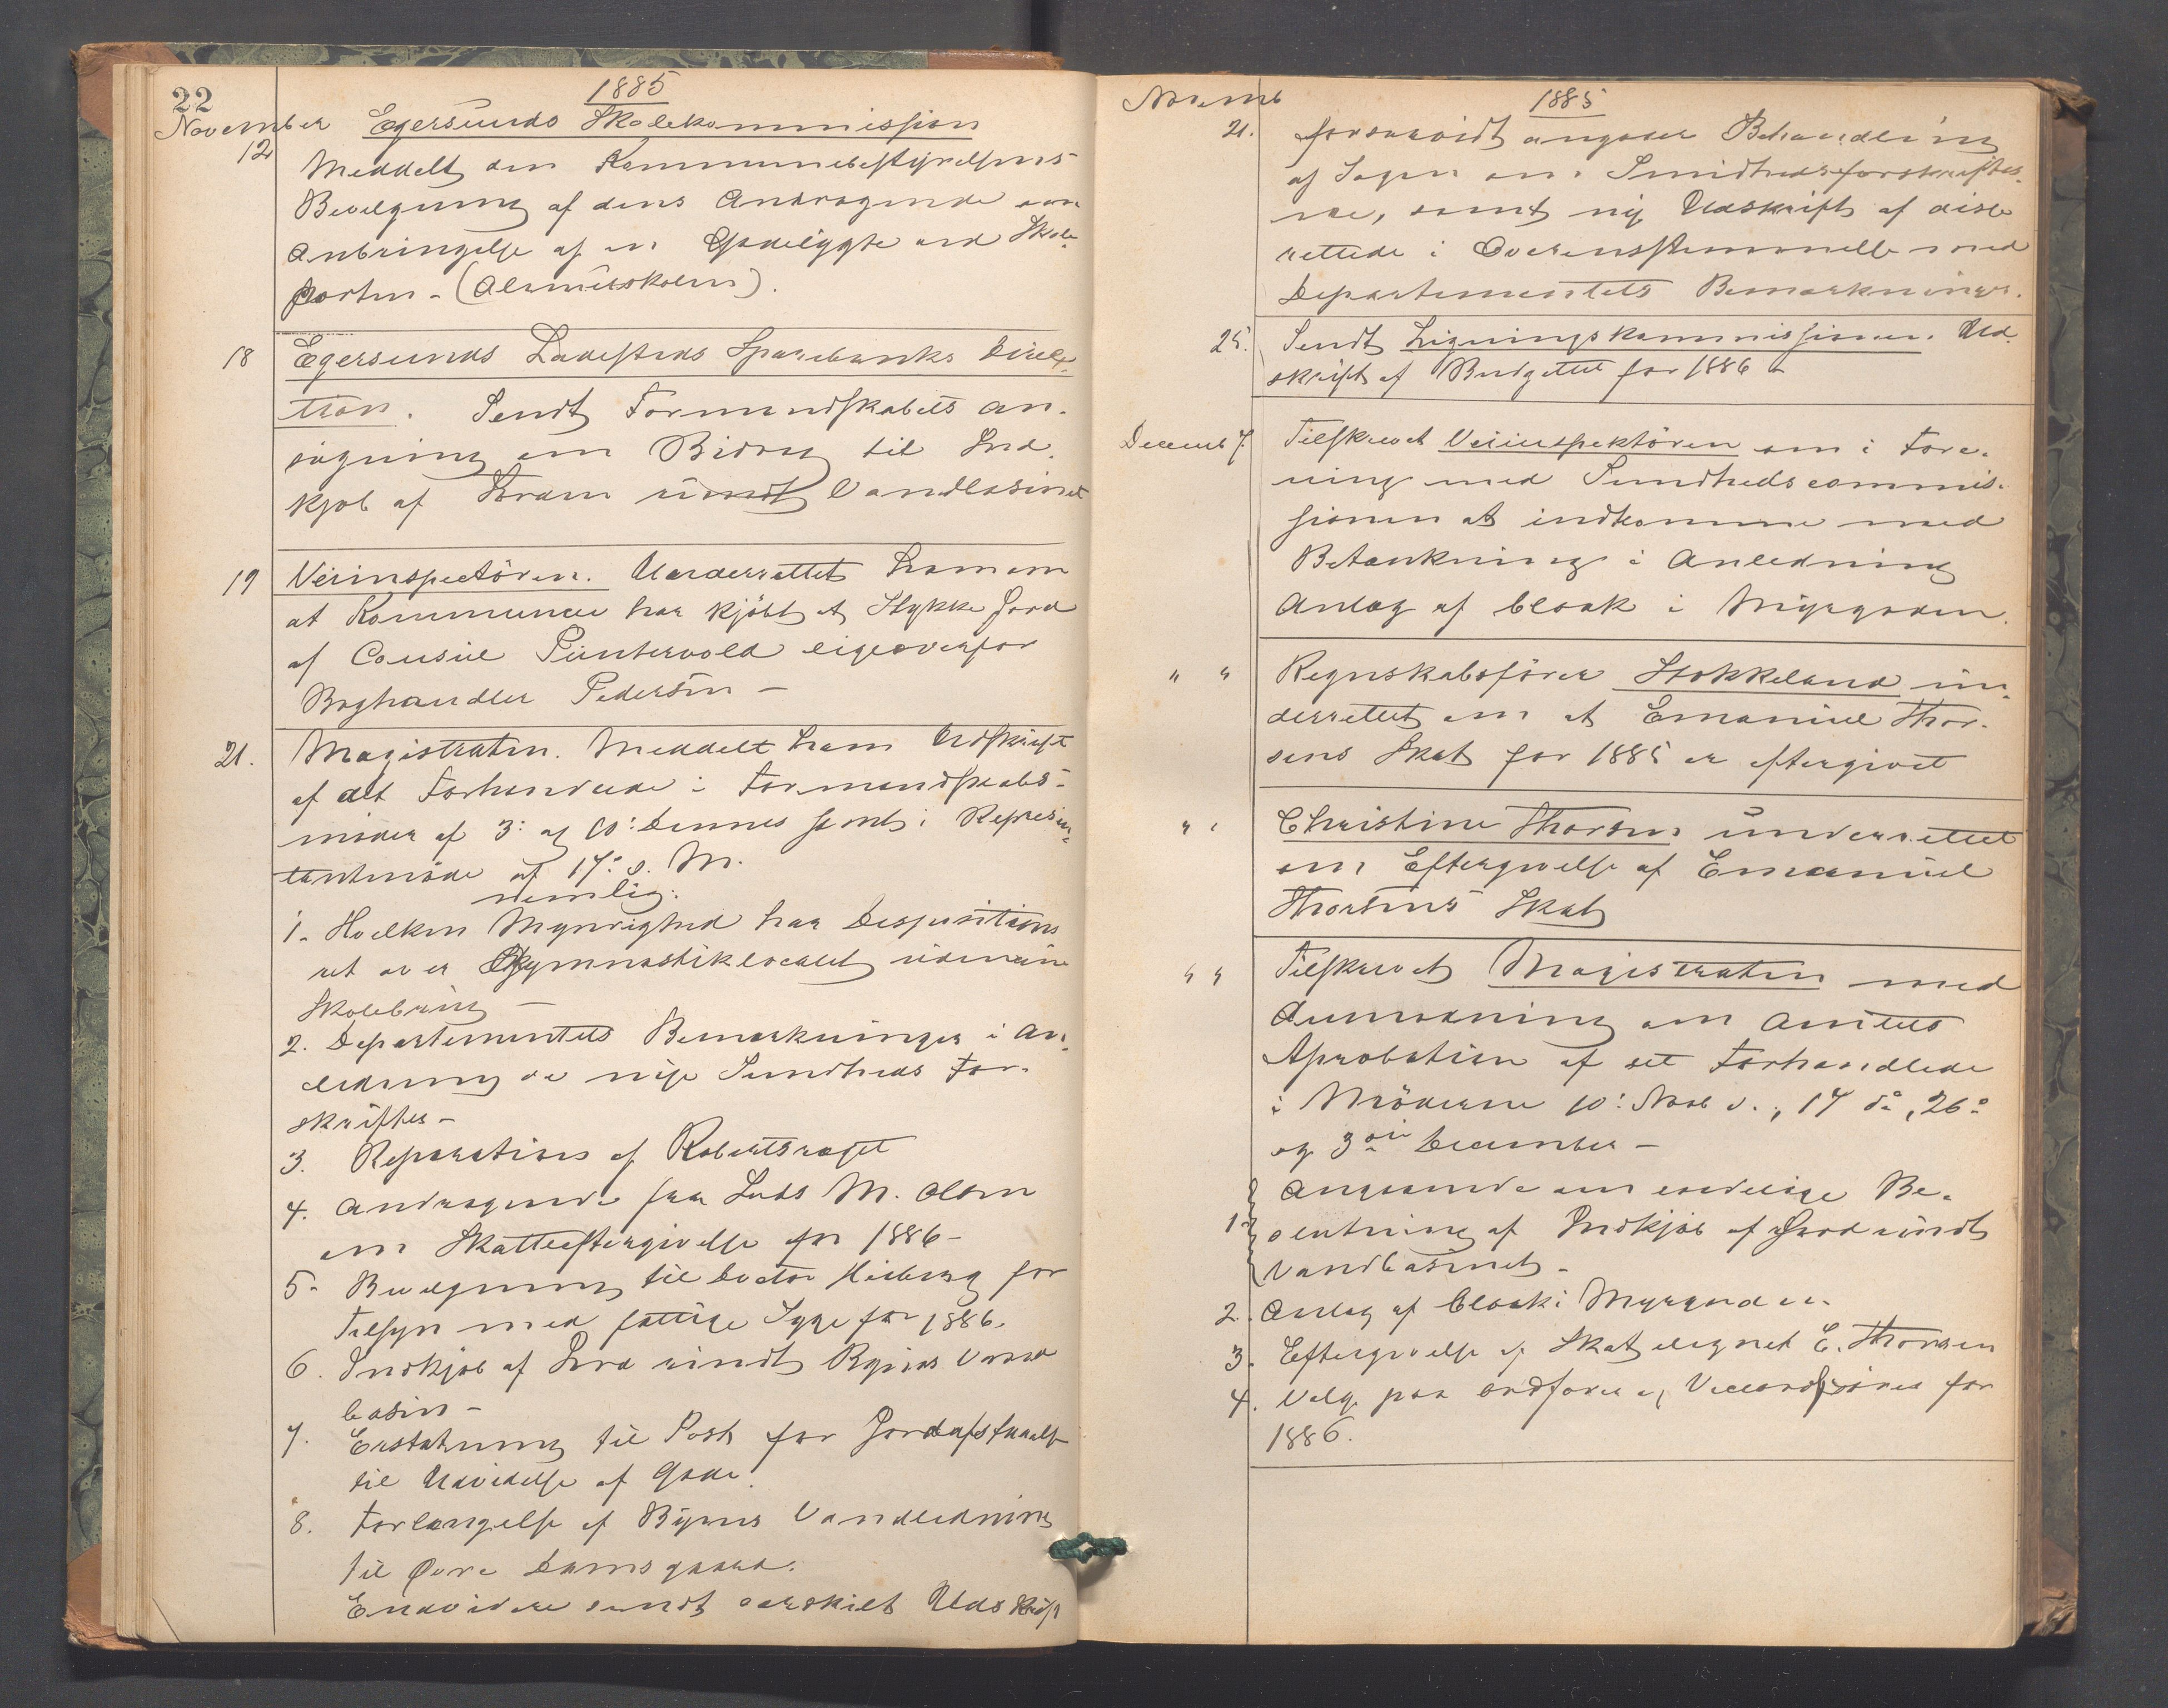 22
1885
November Egersunds Skolekommission
12
Meddelt den Kommunebestyrelsens
Bevilgning af dens Andragende om
Anbringelse af en Gadelygte ved Skole-
porten - (Almueskolen).
18 Egersunds Ladesteds Sparebanks Direk-
tion. Sendt Formandskabets An-
søgning om Bidrag til Ind-
kjøb af Grund rundt Vandbasinet
19 Veiinspectören. Underrettet ham om
at Kommunen har kjöbt et Stykke Jord
af Consul Puntervold ligeoverfor
Boghandler Pedersen -
21. Magistraten. Meddelt ham Udskrift
af det Forhandlede i Formandskabs-
möder af 3: og 10: dennes samt i Repræsen-
tantmöde af 17: d. M.
nemlig:
1. Hvilken Myndighed har Dispositions
ret over Gymnastiklocalet udenom
Skolebrug -
2. Departementets Bemærkninger i An-
ledning de nye Sundheds For-
skrifter -
3. Reparation af
4. Andragende fra Lods M. Olsen
om Skatteeftergivelse for 1886 -
5. Bevilgning til Doctor Heiberg for
Tilsyn med fattige Syge for 1886.
6. Indkjöb af Jord rundt Byens Vand
basin -
7. Erstatning til Post for Jordafstaaelse
til Udvidelse af Gade.
8. Forlængelse af Byens Vandledning
til Øvre Damsgaard.
Endvidere sendt særskilt Udskrift
Novemb 1885
21. forsaavidt angaaer Behandling
af Sagen om Sundhedsforskrifter-
ne, samt ny Udskrift af disse
rettede i Overensstemmelse med
Departementets Bemærkninger.
25. Sendt Ligningskommissionen Ud-
skrift af Budgettet for 1886
Decemb 7. Tilskrevet Veiinspektören om i Fore-
ning med Sundhedscommis-
sionen at indkomme med
Betænkning i Anledning
Anlæg af Cloak i Myrgaden.
" " Regnskabsförer Stokkeland un-
derrettet om at Emanuel Thor-
sens Skat for 1885 er eftergivet
" " Christine Thorsen underrettet
om Eftergivelse af Emanuel
Thorsens Skat
" " Tilskrevet Magistraten med
Anmodning om Amtets
Aprobation af det Forhandlede
i Möderne 10: Novb d., 17 do, 26:
og 3die December -
Angaaende
1. slutning af Indkjöb af Jord rundt
Vandbasinet -
2. Anlæg af Cloak i Myrgaden.
3. Eftergivelse af Skat ilignet E. Thorsen
4. Valg paa Ordförer og Viceordförer for
1886.